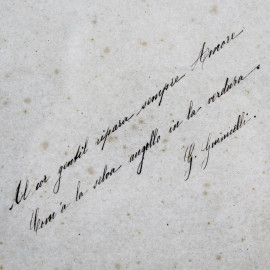 Al cor gentil ripara sempre Amore
Com' a la selva augello in la verdura.
G. Guinicelli.